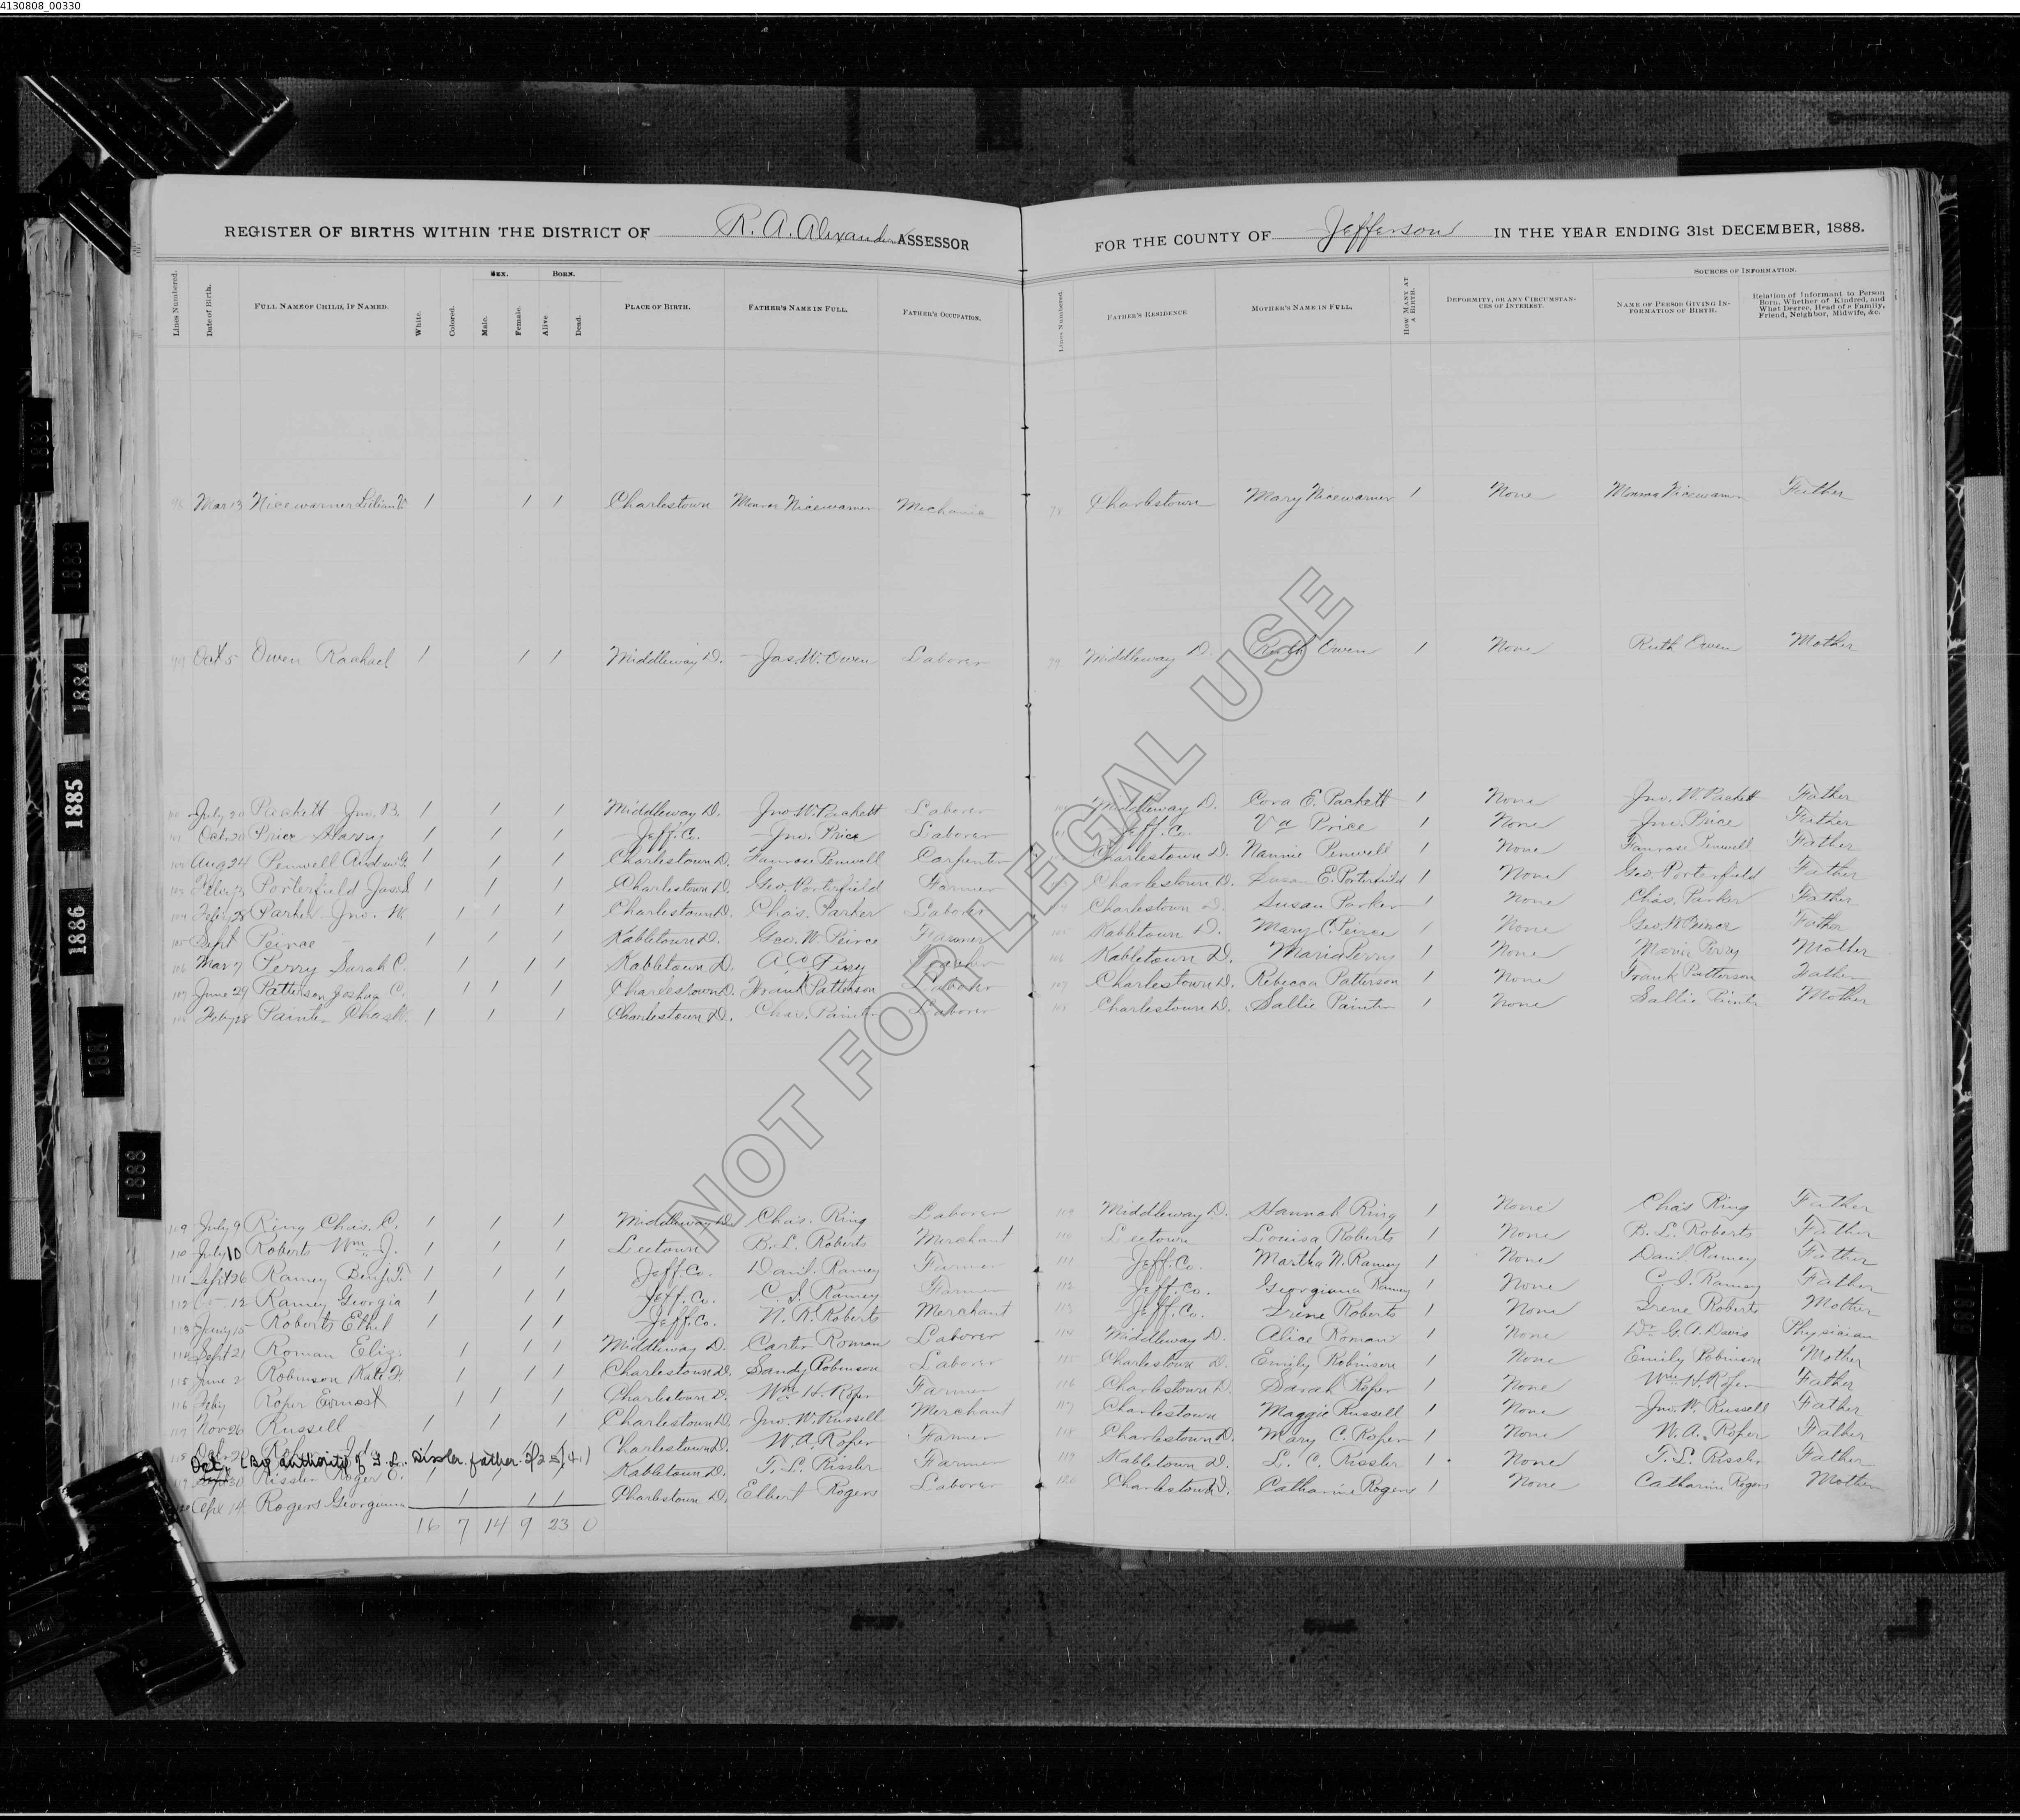 4130808_00330
REGISTER OF BIRTHS WITHIN THE DISTRICT OF R. A. Alexander ASSESSOR FOR THE COUNTY OF Jefferson IN THE YEAR ENDING 31st DECEMBER, 1888.
SEX. BORN. SOURCES OF INFORMATION.
Lines Numbered. Date of Birth. FULL NAME OF CHILD, IF NAMED. White. Colored. Male. Female. Alive. Dead. PLACE OF BIRTH. FATHER'S NAME IN FULL. FATHER'S OCCUPATION. Lines Numbered. FATHER'S RESIDENCE MOTHER'S NAME IN FULL. HOW MANY AT A BIRTH. DEFORMITY, OR ANY CIRCUMSTANCES OF INTEREST. NAME OF PERSON GIVING INFORMATION OF BIRTH. Relation of Informant to Person Born, Whether of Kindred, and What Degree, Head of a Family, Friend, Neighbor, Midwife, &c.
98 Mar 13 Nicewarner Lilian 1 1 1 Charlestown Monroe Nicewarner Mechanic 98 Charlestown Mary Nicewarner 1 None Monroe Nicewarner Father
99 Oct 5 Owen Rachael 1 1 1 Middleway D. Jas W. Owen Laborer 99 Middleway D. Ruth Owen 1 None Ruth Owen Mother
100 July 20 Packett Jno. B. 1 1 1 Middleway D. Jno W. Packett Laborer 100 Middleway D. Cora E. Packett 1 None Jno. W. Packett Father
101 Oct. 20 Price Harry 1 1 1 Jeff. Co. Jno. Price Laborer 101 Jeff. Co. Va Price 1 None Jno. Price Father
102 Aug 24 Penwell 1 1 1 Charlestown D. Penwell Carpenter Charlestown D. Nannie Penwell 1 None Penwell Father
103 Feby 13 Porterfield Jas 1 1 1 Charlestown D. Geo. Porterfield Farmer Charlestown D. Susan E. Porterfield 1 None Geo. Porterfield Father
104 Feby 28 Parker Jno. 1 1 1 Charlestown D. Chas. Parker Laborer Charlestown D. Susan Parker 1 None Chas. Parker Father
105 Sept Peirce 1 1 1 Kabletown D. Geo. W. Peirce Farmer 105 Kabletown D. Mary C. Peirce 1 None Geo. W. Peirce Father
106 Mar 7 Perry Sarah C. 1 1 1 Kabletown D. Perry 106 Kabletown D. Maria Perry 1 None Maria Perry Mother
107 June 29 Patterson Joshua C. 1 1 1 Charlestown D. Frank Patterson Laborer 107 Charlestown D. Rebecca Patterson 1 None Frank Patterson Father
108 Feby 28 Painter Chas W. 1 1 1 Charlestown D. Chas. Painter Laborer 108 Charlestown D. Sallie Painter 1 None Sallie Painter Mother
109 July 9 Ring Chas. C. 1 1 1 Middleway D. Chas. Ring Laborer 109 Middleway D. Hannah Ring 1 None Chas Ring Father
110 July 10 Roberts Wm. J. 1 1 1 Leetown B. L. Roberts Merchant 110 Leetown Louisa Roberts 1 None B. L. Roberts Father
111 Sept 26 Ramey Benj. F. 1 1 1 Jeff. Co. Danl. Ramey Farmer 111 Jeff. Co. Martha N. Ramey 1 None Danl Ramey Father
112 12 Ramey Georgia 1 1 1 Jeff. Co. C. I. Ramey Farmer 112 Jeff. Co. Georgiana Ramey 1 None C. I. Ramey Father
113 Jany 15 Roberts Ethel 1 1 1 Jeff. Co. N. R. Roberts Merchant 113 Jeff. Co. Irene Roberts 1 None Irene Roberts Mother
114 Sept 21 Roman Eliz. 1 1 1 Middleway D. Carter Roman Laborer 114 Middleway D. Alice Roman 1 None Dr G. A. Davis Physician
115 June 2 Robinson Kate F. 1 1 1 Charlestown D. Sandy Robinson Laborer 115 Charlestown D. Emily Robinson 1 None Emily Robinson Mother
116 Feby Roper Earnest 1 1 1 Charlestown D. Wm. H. Roper Farmer 116 Charlestown D. Sarah Roper 1 None Wm. H. Roper Father
117 Nov 26 Russell 1 1 1 Charlestown D. Jno. W. Russell Merchant 117 Charlestown Maggie Russell 1 None Jno. W. Russell Father
118 Oct. Charlestown D. W. A. Roper Farmer 118 Charlestown D. Mary C. Roper 1 None W. A. Roper Father
Oct. (By authority of T. L. Rissler father 3/25/41)
119 30 Rissler Roger O. 1 1 1 Kabletown D. T. L. Rissler Farmer 119 Kabletown D. L. C. Rissler 1 None T. L. Rissler Father
120 Apl 14 Rogers Georgiana 1 1 1 Charlestown D. Elbert Rogers Laborer 120 Charlestown D. Catharine Rogers 1 None Catharine Rogers Mother
16 7 14 9 23 0
1882
1883
1884
1885
1886
1887
1888
1889
NOT FOR LEGAL USE